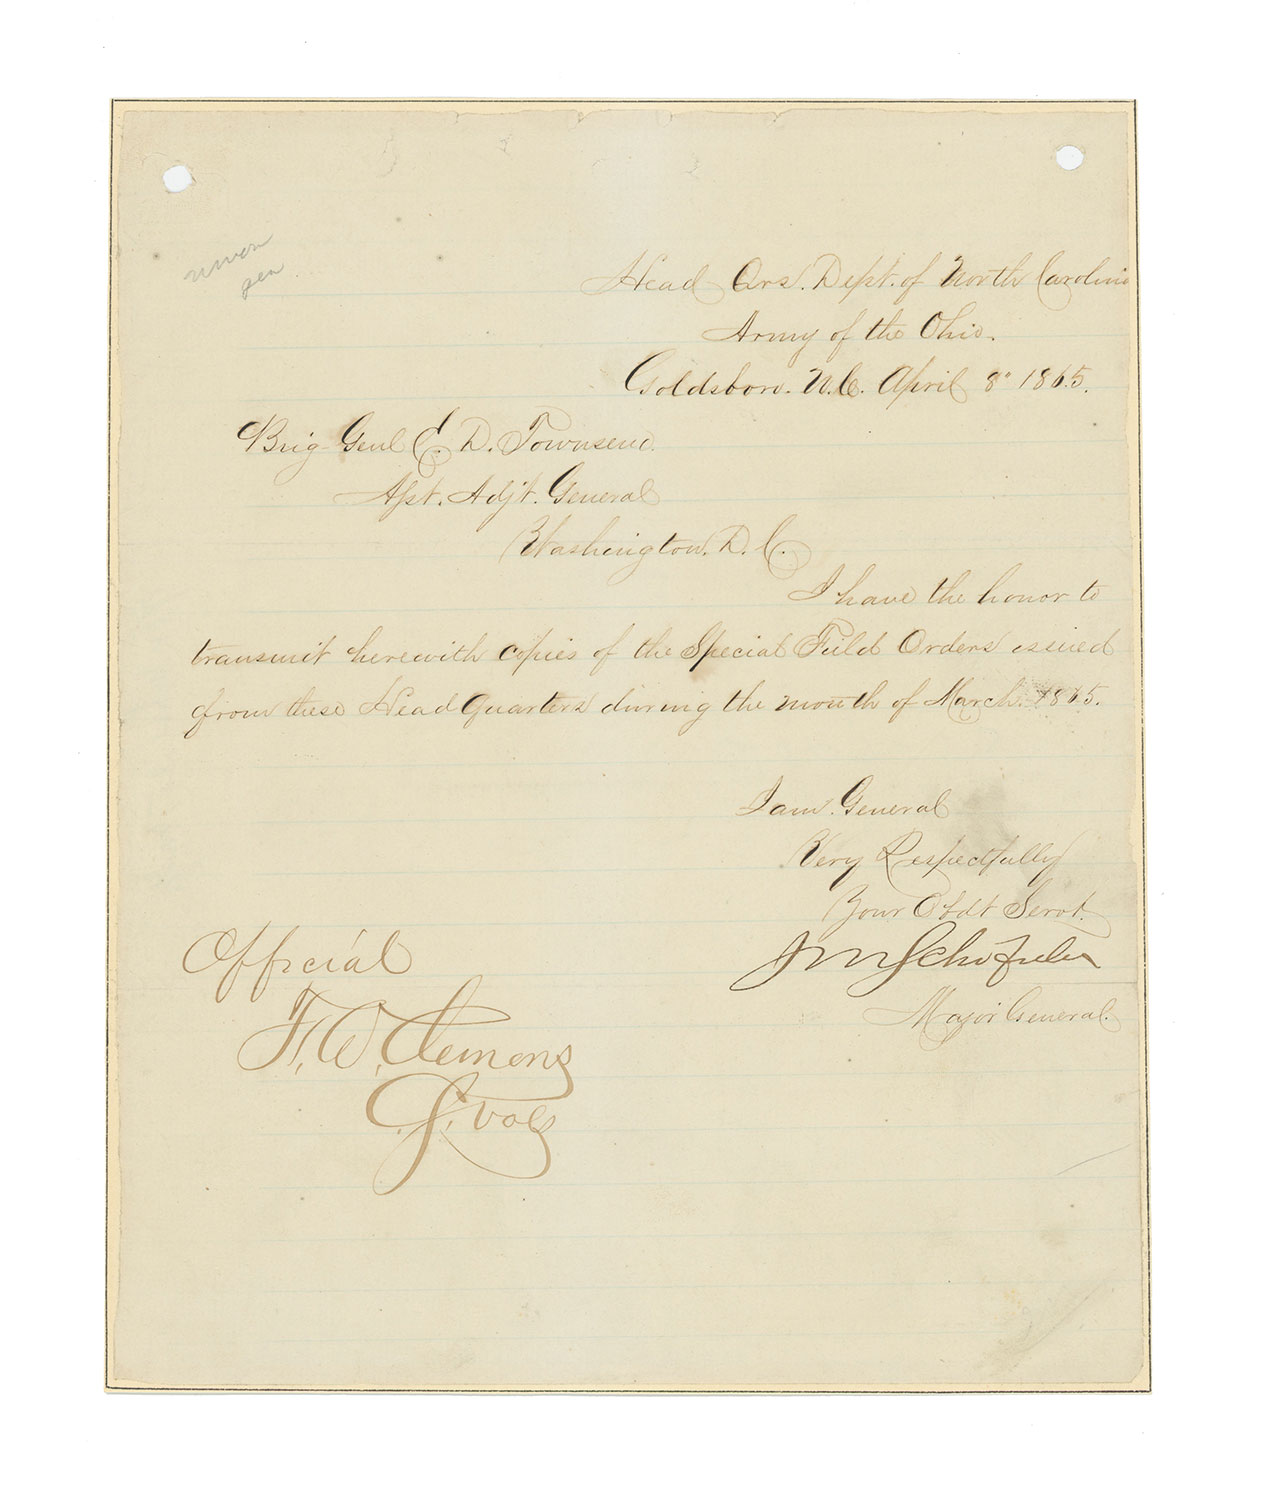 union
pen
Head Qrs. Dept. of North Carolina
Army of the Ohio.
Goldsboro. N.C. April 8" 1865.
Brig Genl E. D. Townsend.
Asst. Adjt. General
Washington. D. C.
I have the honor to
transmit herewith copies of the Special Field Orders issued
from these Head Quarters during the month of March. 1865.
I am. General
Very Respectfully
Your Obdt Servt.
JM Schofield
Major General.
Official
F. W. Clemons